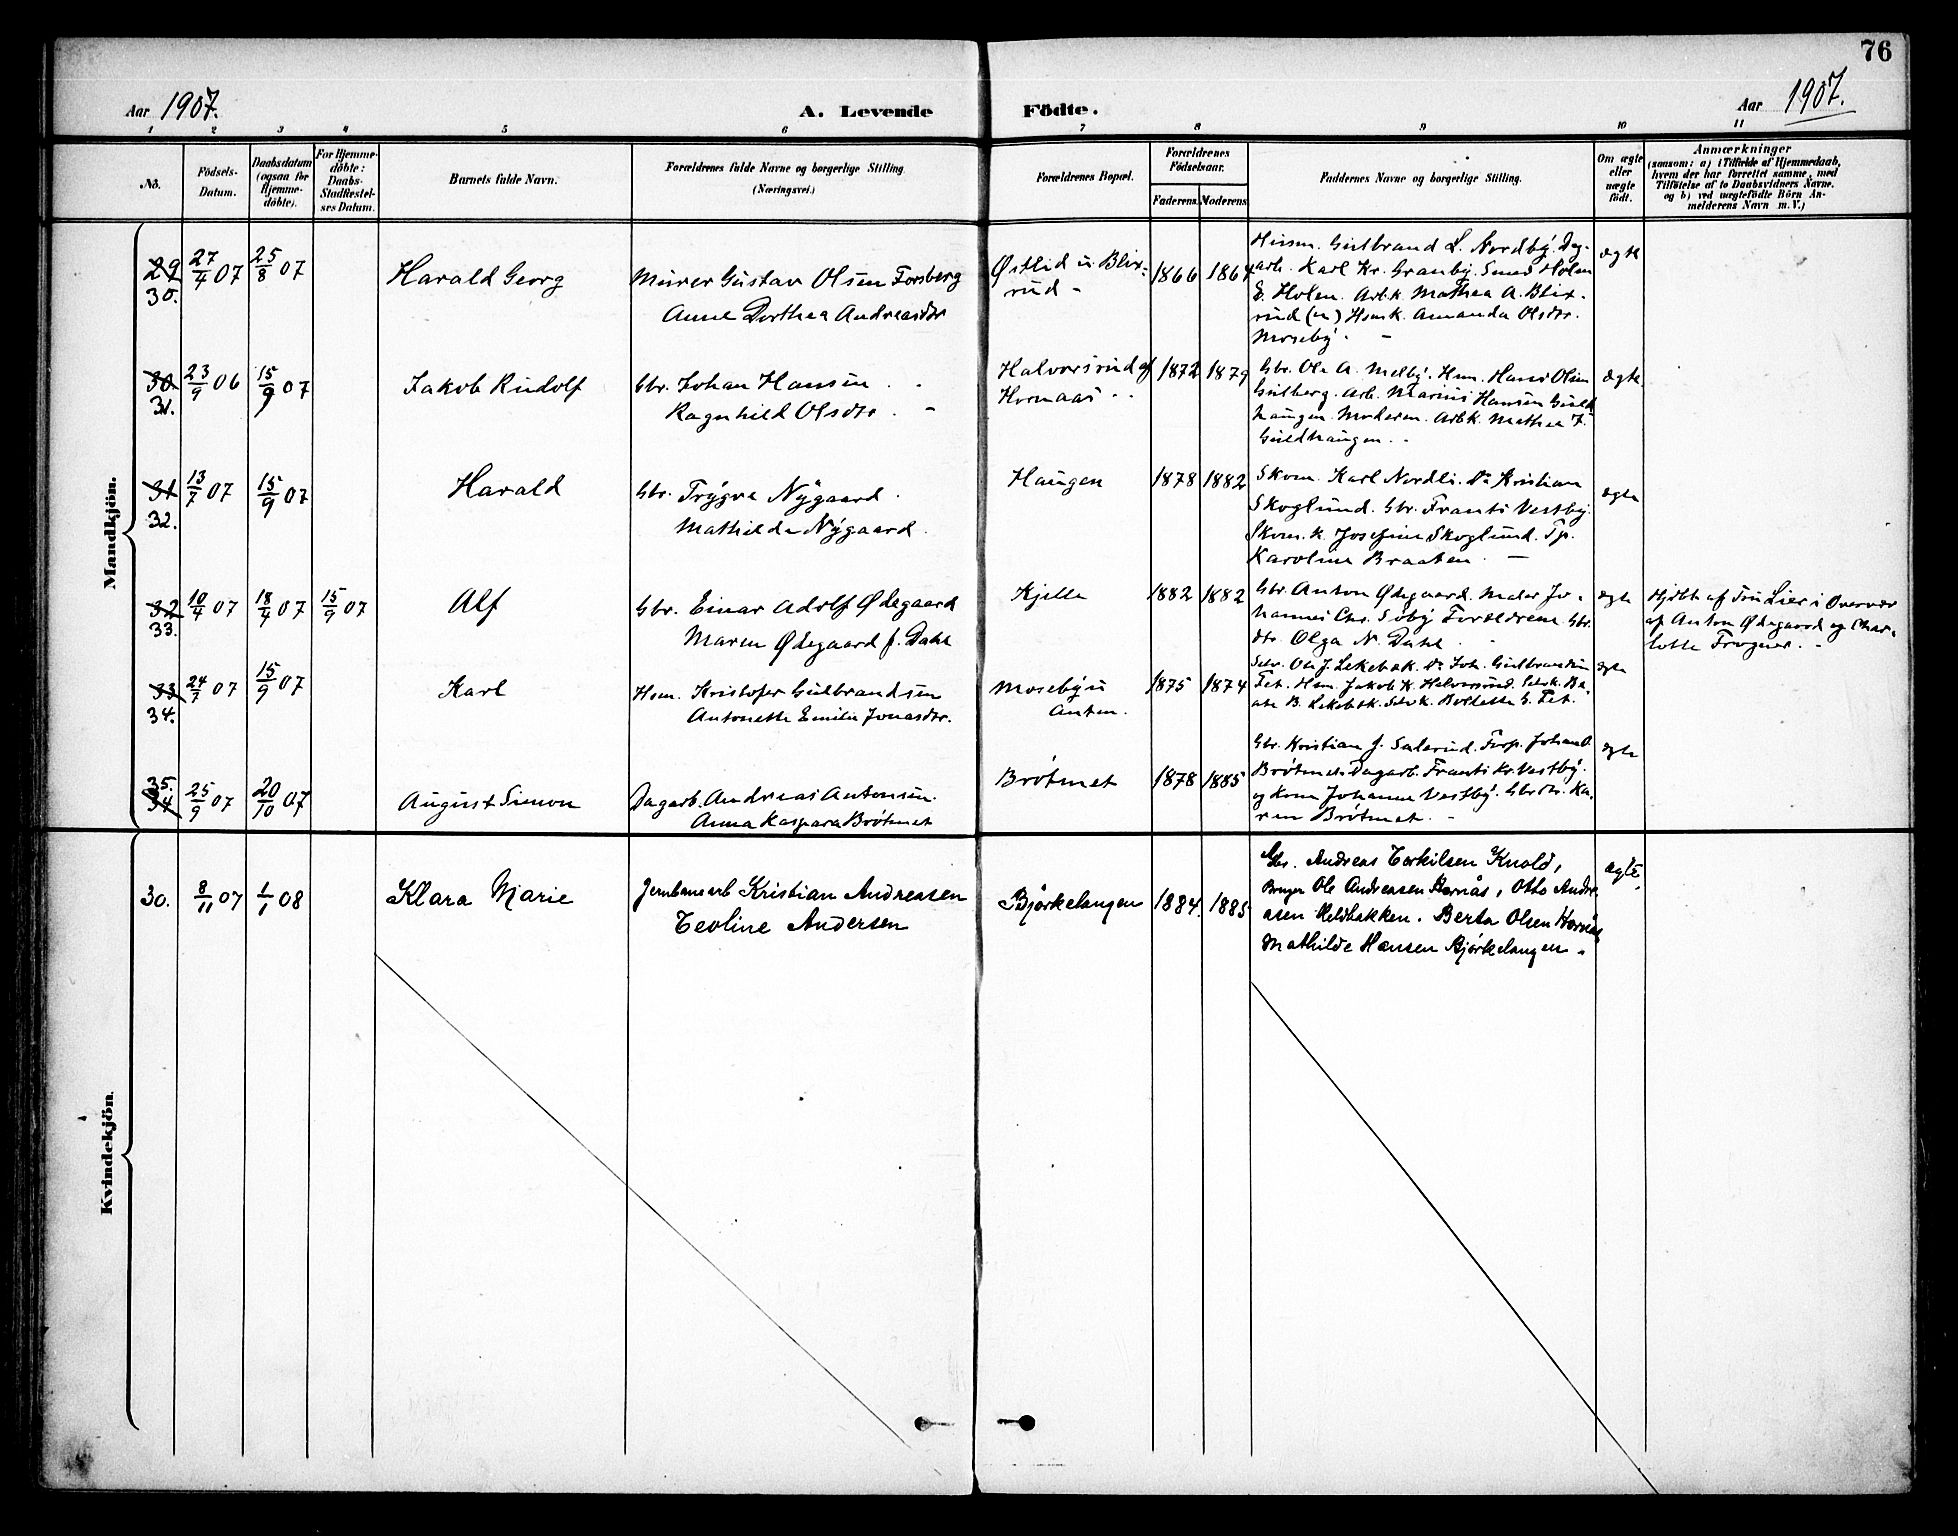 76
Aar 1907.
A. Levende
Födte.
Aar 1907.
1 2 3 4 5 6 7 8 9 10 11
No.
Födsels-
Datum.
Daabsdatum
(ogsaa for
Hjemme-
döbte).
For Hjemme-
döbte:
Daabs-
Stadfæstel-
ses Datum.
Barnets fulde Navn.
Forældrenes fulde Navne og borgerlige Stilling
(Næringsvei.)
Forældrenes Bopæl.
Forældrenes
Födselsaar.
Faderens. Moderens.
Faddernes Navne og borgerlige Stilling.
Om ægte
eller
uægte
födt.
Anmærkninger
(saasom: a) i Tilfælde af Hjemmedaab,
hvem der har forrettet samme, med
Tilföielse af to Daabsvidners Navne.
og b) ved uægtefödte Börn An-
melderens Navn m. V.)
Mandkjön.
29 27/4 07 25/8 07
30.
Harald Georg
Murer Gustav Olsen Forsberg
Anne Dorthea Andreasdtr
Østlid u Blix-
rud -
1866 1864
Husm. Gulbrand L. Nordby. Dag-
arb. Karl Kr. Granby. Smed Holen
E. Holen. Arb.k. Mathea A. Blix-
rud (u) Hsm k. Amanda Olsdtr.
Moseby. -
ægte
30 23/9 06 15/9 07
31.
Jakob Rudolf
Gbr. Johan Hansen
Ragnhild Olsdtr. -
Halvorsrud af
Hornaas
1872 1879
Gbr. Ole A. Melby. Hsm. Hans Olsen
Gulberg. Arb. Marius Hansen Guld-
haugen. Moderen. Arbk. Mathea J.
Guldhaugen.
ægte.
31 13/7 07 15/9 07
32.
Harald
Gbr. Trygve Nygaard
Mathilde Nygaard.
Haugen
1878 1882
Skom. Karl Nordli. Do Kristian
Skoglund. Gbr. Frants Vestby.
Skom. k. Josefine Skoglund. Tp.
Karoline Braaten -
ægte
32 10/4 07 18/4 07 15/9 07
33.
Alf
Gbr. Einar Adolf Ødegaard
Maren Ødegaard f. Dahl
Kjelle
1882 1882
Gbr. Anton Ødegaard. Maler Jo-
hannes Chr. Søby Forældrene Gbr.
dtr. Olga N. Dahl.
ægte
Hjdbt. af Fru Lier i Overvær
af Anton Ødegaard og Char-
lotte Frogner. -
33 24/7 07 15/9 07
34.
Karl
Hsm. Kristofer Gulbrandsen
Antonette Emilie Jonasdtr.
Moseby u
Anten.
1875 1874
Selv. Ole J. Lekebæk. Do Joh. Gulbrandsen
Fet. Hsm. Jakob K. Halvorsrud. Selvk. Be-
ate B. Lekebæk. Selvk. Bolette G. Fet.
ægte
35.
34 25/9 07 20/10 07
August Simon
Dagarb. Andreas Antonsen.
Anna Kaspara Brøtmet
Brøtmet
1878 1885
Gbr. Kristian J. Salerud. Frp. Johan O.
Brøtmet. Dagarb. Frants Kr. Vestby.
og kone Johanne Vestby. Gbr. dtr. Ka-
ren Brøtmet. -
ægte
Kvindekjön.
30. 8/11 07 1/1 08
Klara Marie
Jernbanearb Kristian Andreasen
Teoline Andersen
Bjørkelangen
1884. 1885
Gbr. Andreas Torkilsen Knold,
Bruger Ole Andreasen Hornås, Otto Andre-
asen Heldbakken. Berta Olsen Hornås,
Mathilde Hansen Bjørkelangen.
ægte.